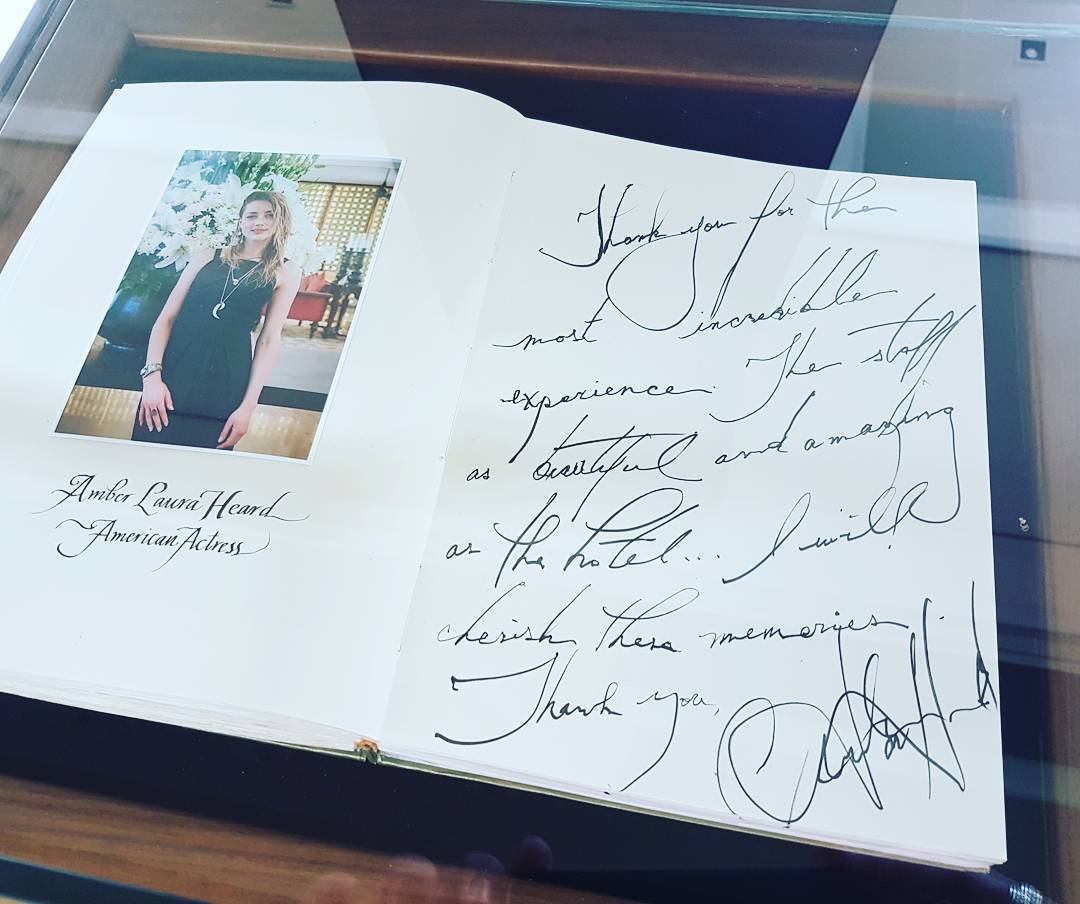 Amber Laura Heard
American Actress
Thank you for the
most incredible
experience. The staff
as beautiful and amazing
as the hotel... I will
cherish these memories.
Thank you,